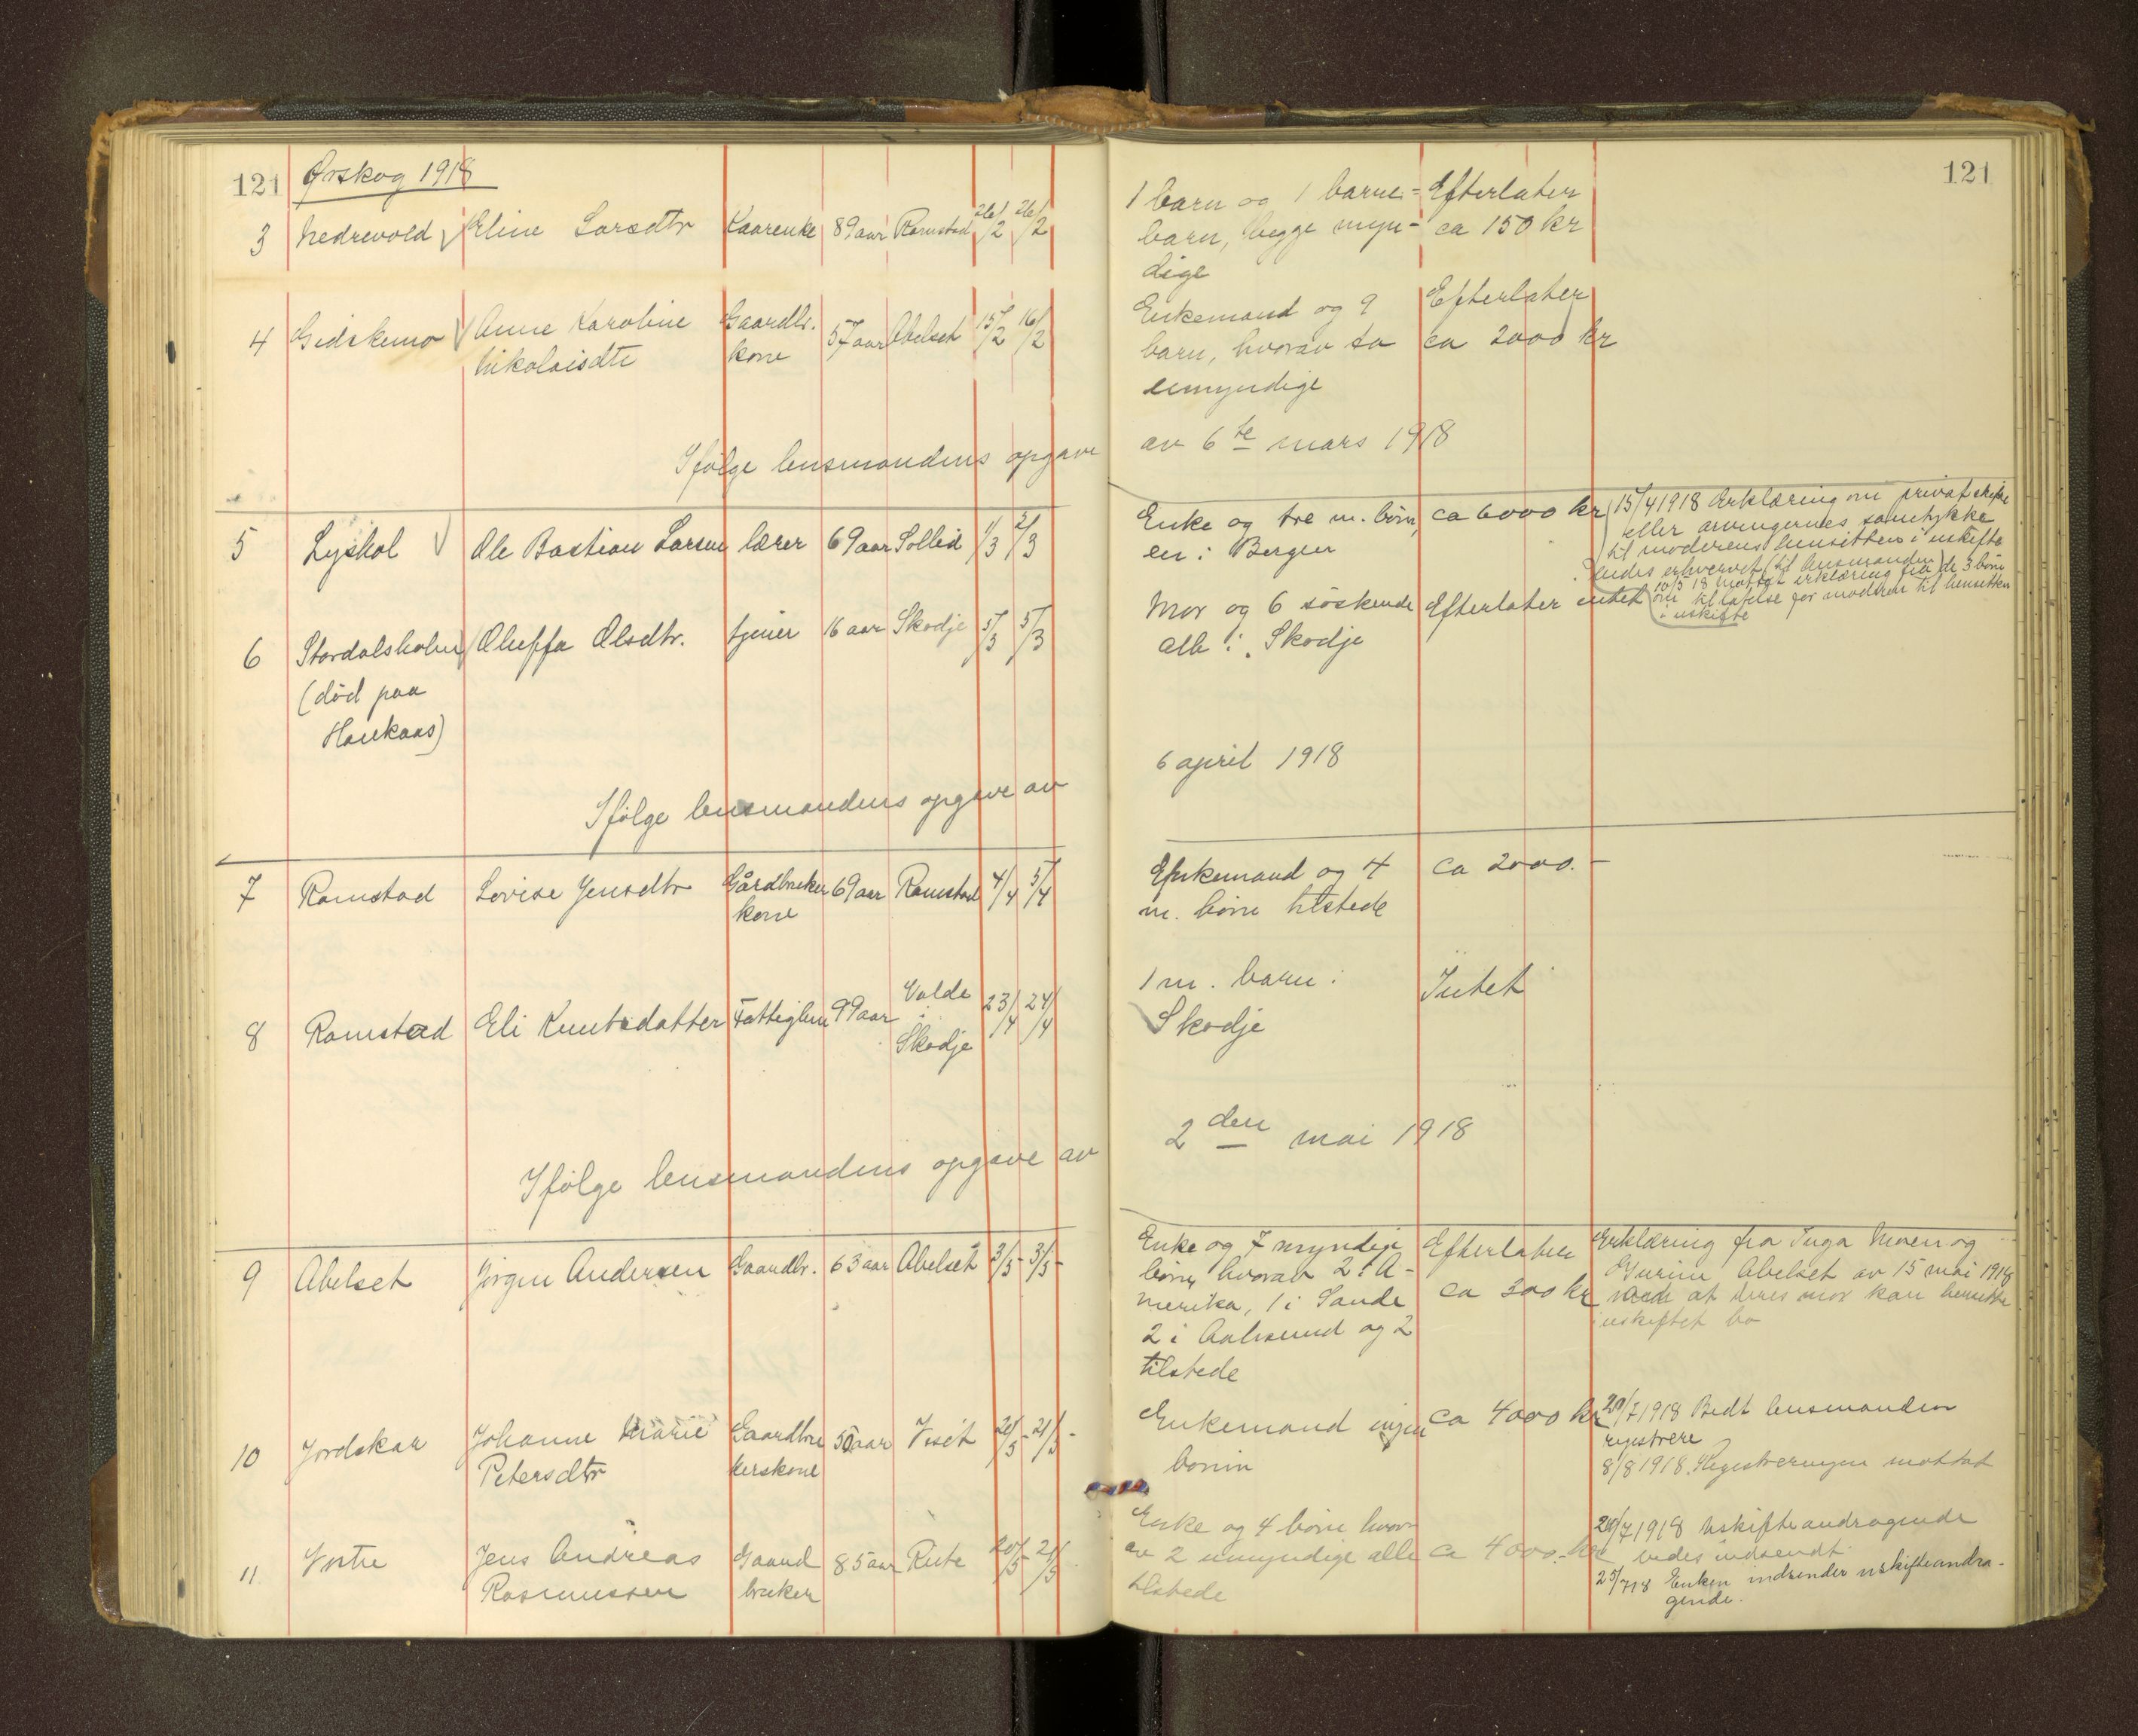 121 Ørskog 1918
3 Nedrevold Eline Larsdtr Kaarenke 89 aar Ramstad 26/2 26/2
4 Gidskemo Anne Karoline Gaardbr. 57 aar Abelset 15/2 16/2
Nikolaisdtr kone
Ifølge lensmandens opgave
5 Lyshol Ole Bastian Larsen lærer 69 aar Sollid 1/3 2/3
6 Stordalsholm Oluffa Olsdtr. tjener 16 aar Skodje 5/3 5/3
(død paa
Haukaas)
Ifølge lensmandens opgave av
7 Ramstad Lovise Jensdtr Gårdbruker 69 aar Ramstad 4/4 5/4
kone
8 Ramstad Eli Knutsdatter Fattiglem 99 aar Valde i Skodje 23/4 24/4
Ifølge lensmandens opgave av
9 Abelset Jørgen Andersen Gaardbr. 63 aar Abelset 3/5- 3/5-
10 Jordskar Johanne Marie Gaardbru 50 aar Viset 20/5- 21/5-
Petersdtr kerskone
11 Vestre Jens Andreas Gaard 85 aar Rute 20/5- 21/5
Rasmussen bruker
121
1 barn og 1 barne= Efterlater
barn, begge myn- ca 150 kr
dige
Enkemand og 9 Efterlater
barn, hvorav to ca 2000 kr
umyndige
av 6te mars 1918
Enke og tre m. børn, ca 6000 kr 15/4 1918 Erklæring om privat skifte
en i Bergen eller arvingernes samtykke
til moderens hensitten i uskifte
bedes erhvervet (til lensmanden)
10/5 18 Mottat erklæring fra de 3 børn
om tillatelse for moderen til hensitten
i uskifte
Mor og 6 søskende Efterlater intet
alle i Skodje
6 april 1918
Enkemand og 4 ca 2000.-
m. børn tilstede
1 m. barn i Intet
Skodje
2den mai 1918
Enke og 7 myndige Efterlater Erklæring fra Inga Moen og
børn, hvorav 2 i A- ca 300 kr Gurine Abelset av 15 mai 1918
merika, 1 i Sande at deres mor kan hensitte
2 i Aalesund og 2 uskiftet bo
tilstede
Enkemand ingen ca 4000 kr 20/7 1918 Bedt lensmanden
børn registrere
8/8 1918. Registreringen mottat
Enke og 4 børn hvor 20/7 1918 Uskifteandragende
av 2 umyndige alle ca 4000.- kr bedes indsendt
tilstede 25/7 18 Enken indsender uskifteandra-
gende.